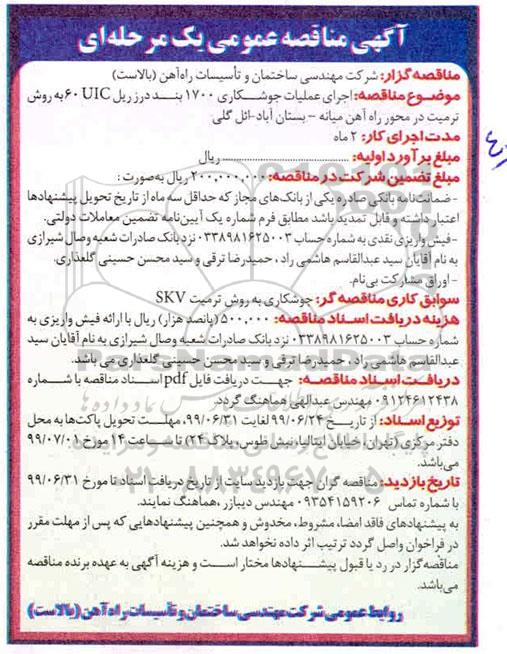 آگهی مناقصه عمومی یک مرحله‌ای
مناقصه گزار: شرکت مهندسی ساختمان و تأسیسات راه‌آهن (بالاست)
موضوع مناقصه: اجرای عملیات جوشکاری ۱۷۰۰ بند درز ریل UIC ۶۰ به روش
ترمیت در محور راه آهن میانه - بستان آباد-ائل گلی
مدت اجرای کار: ۲ ماه
مبلغ برآورد اولیه: .......... ریال
مبلغ تضمین شرکت در مناقصه: ۲۰۰,۰۰۰,۰۰۰ ریال به‌صورت:
-ضمانت‌نامه بانکی صادره یکی از بانک‌های مجاز که حداقل سه ماه از تاریخ تحویل پیشنهادها
اعتبار داشته و قابل تمدید باشد مطابق فرم شماره یک آیین‌نامه تضمین معاملات دولتی.
-فیش واریزی نقدی به شماره حساب ۰۳۳۸۹۸۱۶۲۵۰۰۳ نزد بانک صادرات شعبه وصال شیرازی
به نام آقایان سید عبدالقاسم هاشمی راد ، حمیدرضا ترقی و سید محسن حسینی گلعذاری.
-اوراق مشارکت بی‌نام.
سوابق کاری مناقصه گر: جوشکاری به روش ترمیت SKV
هزینه دریافت اسناد مناقصه: ۵۰۰,۰۰۰ (پانصد هزار) ریال با ارائه فیش واریزی به
شماره حساب ۰۳۳۸۹۸۱۶۲۵۰۰۳ نزد بانک صادرات شعبه وصال شیرازی به نام آقایان سید
عبدالقاسم هاشمی راد ، حمیدرضا ترقی و سید محسن حسینی گلعذاری می باشد.
دریافت اسناد مناقصه: جهت دریافت فایل pdf اسناد مناقصه با شماره
۰۹۱۲۴۶۱۲۴۳۸ مهندس عبدالهی هماهنگ گردد.
توزیع اسناد: از تاریخ ۹۹/۰۶/۲۴ لغایت ۹۹/۰۶/۳۱، مهلت تحویل پاکت‌ها به محل
دفتر مرکزی (تهران، خیابان ایتالیا، نبش طوس، پلاک ۲۴) تا ساعت ۱۴ مورخ ۹۹/۰۷/۰۱
می‌باشد.
تاریخ بازدید: مناقصه گران جهت بازدید سایت از تاریخ دریافت اسناد تا مورخ ۹۹/۰۶/۳۱
با شماره تماس ۰۹۳۵۴۱۵۹۲۰۶ مهندس دیبازر ،هماهنگ نمایند.
به پیشنهادهای فاقد امضا، مشروط، مخدوش و همچنین پیشنهادهایی که پس از مهلت مقرر
در فراخوان واصل گردد ترتیب اثر داده نخواهد شد.
مناقصه‌گزار در رد یا قبول پیشنهادها مختار است و هزینه آگهی به عهده برنده مناقصه
می‌باشد.
روابط عمومی شرکت مهندسی ساختمان و تأسیسات راه آهن (بالاست)